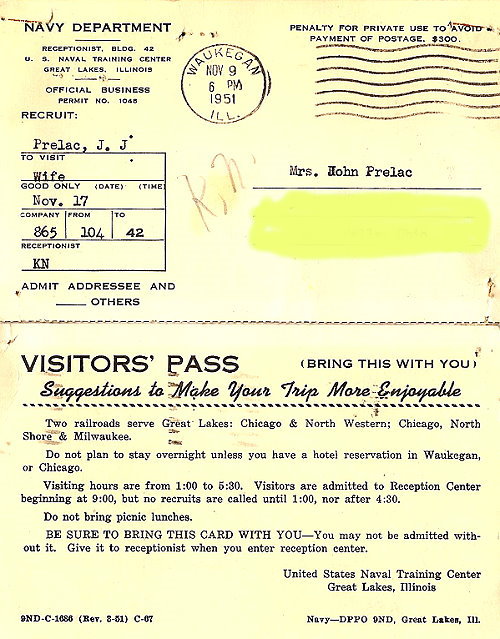 NAVY DEPARTMENT
RECEPTIONIST, BLDG. 42
U. S. NAVAL TRAINING CENTER
GREAT LAKES, ILLINOIS
OFFICIAL BUSINESS
PERMIT NO. 1045
WAUKEGAN
NOV 9
6 PM
1951
ILL.
PENALTY FOR PRIVATE USE TO AVOID
PAYMENT OF POSTAGE, $300.
RECRUIT:
Prelac, J. J
TO VISIT
Wife
GOOD ONLY (DATE) (TIME)
Nov. 17
COMPANY FROM TO
865 104 42
RECEPTIONIST
KN
ADMIT ADDRESSEE AND
____ OTHERS
Mrs. Hohn Prelac
VISITORS' PASS (BRING THIS WITH YOU)
Suggestions to Make Your Trip More Enjoyable
Two railroads serve Great Lakes: Chicago & North Western; Chicago, North
Shore & Milwaukee.
Do not plan to stay overnight unless you have a hotel reservation in Waukegan,
or Chicago.
Visiting hours are from 1:00 to 5:30. Visitors are admitted to Reception Center
beginning at 9:00, but no recruits are called until 1:00, nor after 4:30.
Do not bring picnic lunches.
BE SURE TO BRING THIS CARD WITH YOU—You may not be admitted with-
out it. Give it to receptionist when you enter reception center.
United States Naval Training Center
Great Lakes, Illinois
9ND-C-1686 (Rev. 3-51) C-67 Navy—DPPO 9ND, Great Lakes, Ill.